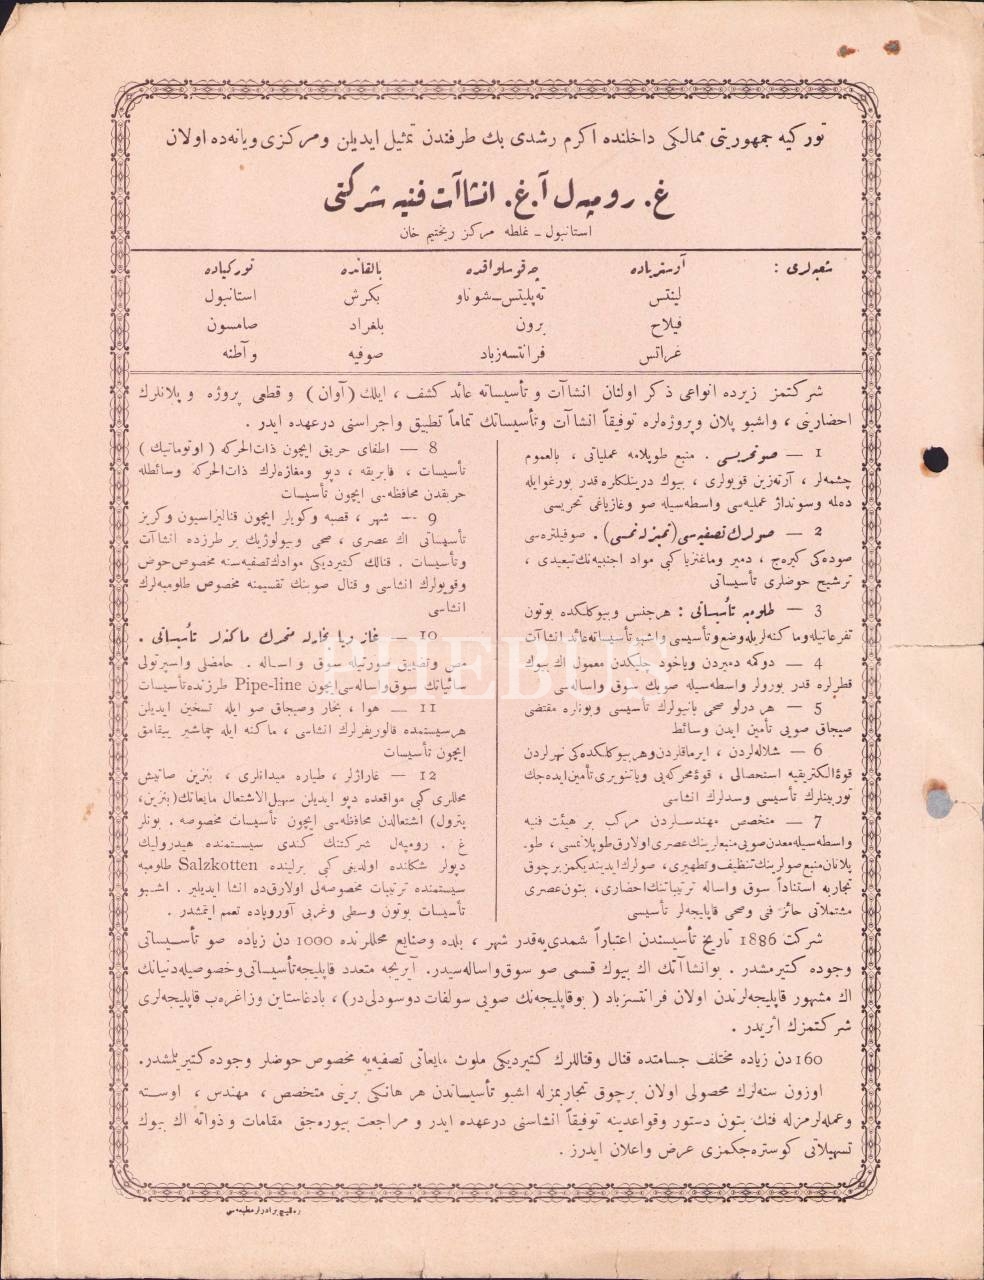 توركیه جمهوریتی ممالكی داخلنده اكرم رشدی بك طرفندن تمثیل ایدیلن و مركزی ویانه‌ده اولان
غ. رومپه‌ل آ. غ. انشاآت فنیه شركتی
استانبول ـ غلطه مركز ریختیم خان
شعبه‌لری : آوستریاده چه‌قوسلواقده بالقانده توركیاده
لینتس ته‌پلیتس ـ شوناو بكرش استانبول
فیلاح برون بلغراد صامسون
غراتس فرانتسه‌زباد صوفیه و آطنه
شركتمز زیرده انواعی ذكر اولنان انشاآت و تأسیساته عائد كشف ، ایلك (آوان) و قطعی پروژه و پلانلرك
احضارینی ، واشبو پلان و پروژه‌لره توفیقاً انشاآت وتأسیساتك تماماً تطبیق واجراسنی درعهده ایدر .
1 — صو تحریسی . منبع طوپلامه عملیاتی ، بالعموم
چشمه‌لر ، آرته‌زین قویولری ، بیوك درینلكلره قدر بورغوایله
ده‌لمه وسونداژ عملیه‌سی واسطه‌سیله صو وغازیاغی تحریسی
2 — صولرك تصفیه‌سی (تمیزله‌نمسی) . صوفیلتره‌سی
صوده‌كی كیره‌ج ، دمیر وماغنزیا كبی مواد اجنبیه‌نك تبعیدی ،
ترشیح حوضلری تأسیساتی
3 — طلومبه تأسیساتی : هرجنس وبیوكلكده بوتون
تفرعاتیله وماكنه‌لریله وضع وتأسیسی واشبو تأسیساته عائد انشاآت
4 — دوكمه دمیردن ویاخود چلیكدن معمول اك بیوك
قطرلره قدر بورولر واسطه‌سیله صویك سوق واساله‌سی
5 — هر درلو صحی بانیولرك تأسیسی وبونلره مقتضی
صیجاق صویی تأمین ایدن وسائط
6 — شلاله‌لردن ، ایرماقلردن وهر بیوكلكده‌كی نهرلردن
قوهٔ الكتریقیه استحصالی ، قوهٔ محركه‌یی ویاتنویری تأمین ایده‌جك
توربینلرك تأسیسی وسدلرك انشاسی
7 — متخصص مهندسلردن مركب بر هیئت فنیه
واسطه‌سیله معدن صویی منبعلرینك عصری اولارق طوپلانمسی ، طو‌ـ
پلانان منبع صولرینك تنظیف وتطهیری ، صولرك ایدیندیكمز برچوق
تجاربه استناداً سوق واساله ترتیباتنك احضاری ، بتون عصری
مشتملاتی حائز فنی وصحی قاپلیجه‌لر تأسیسی
8 — اطفای حریق ایچون ذات‌الحركه (اوتوماتیك)
تأسیسات ، فابریقه ، دپو ومغازه‌لرك ذات‌الحركه وسائطله
حریقدن محافظه‌سی ایچون تأسیسات
9 — شهر ، قصبه وكویلر ایچون قنالیزاسیون وكریز
تأسیساتی اك عصری ، صحی وبیولوژیك بر طرزده انشاآت
وتأسیسات . قنالك كتیردیكی موادك تصفیه‌سنه مخصوص حوض
وقویولرك انشاسی و قنال صوینك تقسیمنه مخصوص طلومبه‌لرك
انشاسی
10 — غاز ویا بخارله متحرك ماكنه‌لر تأسیساتی .
مص وتضییق صورتیله سوق و اساله . حامضلی واسپرتولی
سائیاتك سوق واساله‌سی ایچون Pipe-line طرزنده تأسیسات
11 — هوا ، بخار وصیجاق صو ایله تسخین ایدیلن
هرسیستمده قالوریفرلرك انشاسی ، ماكنه ایله چماشیر ییقامق
ایچون تأسیسات
12 — غاراژلر ، طیاره میدانلری ، بنزین صاتیش
محللری كبی مواقعده دپو ایدیلن سهیل‌الاشتعال مایعاتك (بنزین،
پترول) اشتعالدن محافظه‌سی ایچون تأسیسات مخصوصه . بونلر
غ . رومپه‌ل شركتنك كندی سیستمنده هیدرولیك
دپولر شكلنده اولدیغی كبی برلینده Salzkotten طلومبه
سیستمنده ترتیبات مخصوصه‌لی اولارق‌ده انشا ایدیلیر . اشبو
تأسیسات بوتون وسطی وغربی آوروپاده تعمم ایتمشدر .
شركت 1886 تاریخ تأسیسندن اعتباراً شمدی‌یه‌قدر شهر ، بلده وصنایع محللرنده 1000 دن زیاده صو تأسیساتی
وجوده كتیرمشدر . بوانشاآتك اك بیوك قسمی صو سوق واساله‌سیدر. آیریجه متعدد قاپلیجه تأسیساتی وخصوصیله دنیانك
اك مشهور قاپلیجه‌لرندن اولان فرانتسزباد (بوقاپلیجه‌نك صویی سولفات دوسودلی‌در) ، بادغاستاین وزاغره‌ب قاپلیجه‌لری
شركتمزك اثریدر .
160 دن زیاده مختلف جسامتده قنال وقناللرك كتیردیكی ملوث مایعاتی تصفیه‌یه مخصوص حوضلر وجوده كتیریلمشدر.
اوزون سنه‌لرك محصولی اولان برچوق تجاربمزله اشبو تأسیساتدن هر هانكی برینی متخصص ، مهندس ، اوسته
وعمله‌لرمزله فنك بتون دستور وقواعدینه توفیقاً انشاسنی درعهده ایدر و مراجعت بیوره‌جق مقامات وذواته اك بیوك
تسهیلاتی كوستره‌جكمزی عرض واعلان ایدرز .
برادرلر مطبعه‌سی
PHEBUS